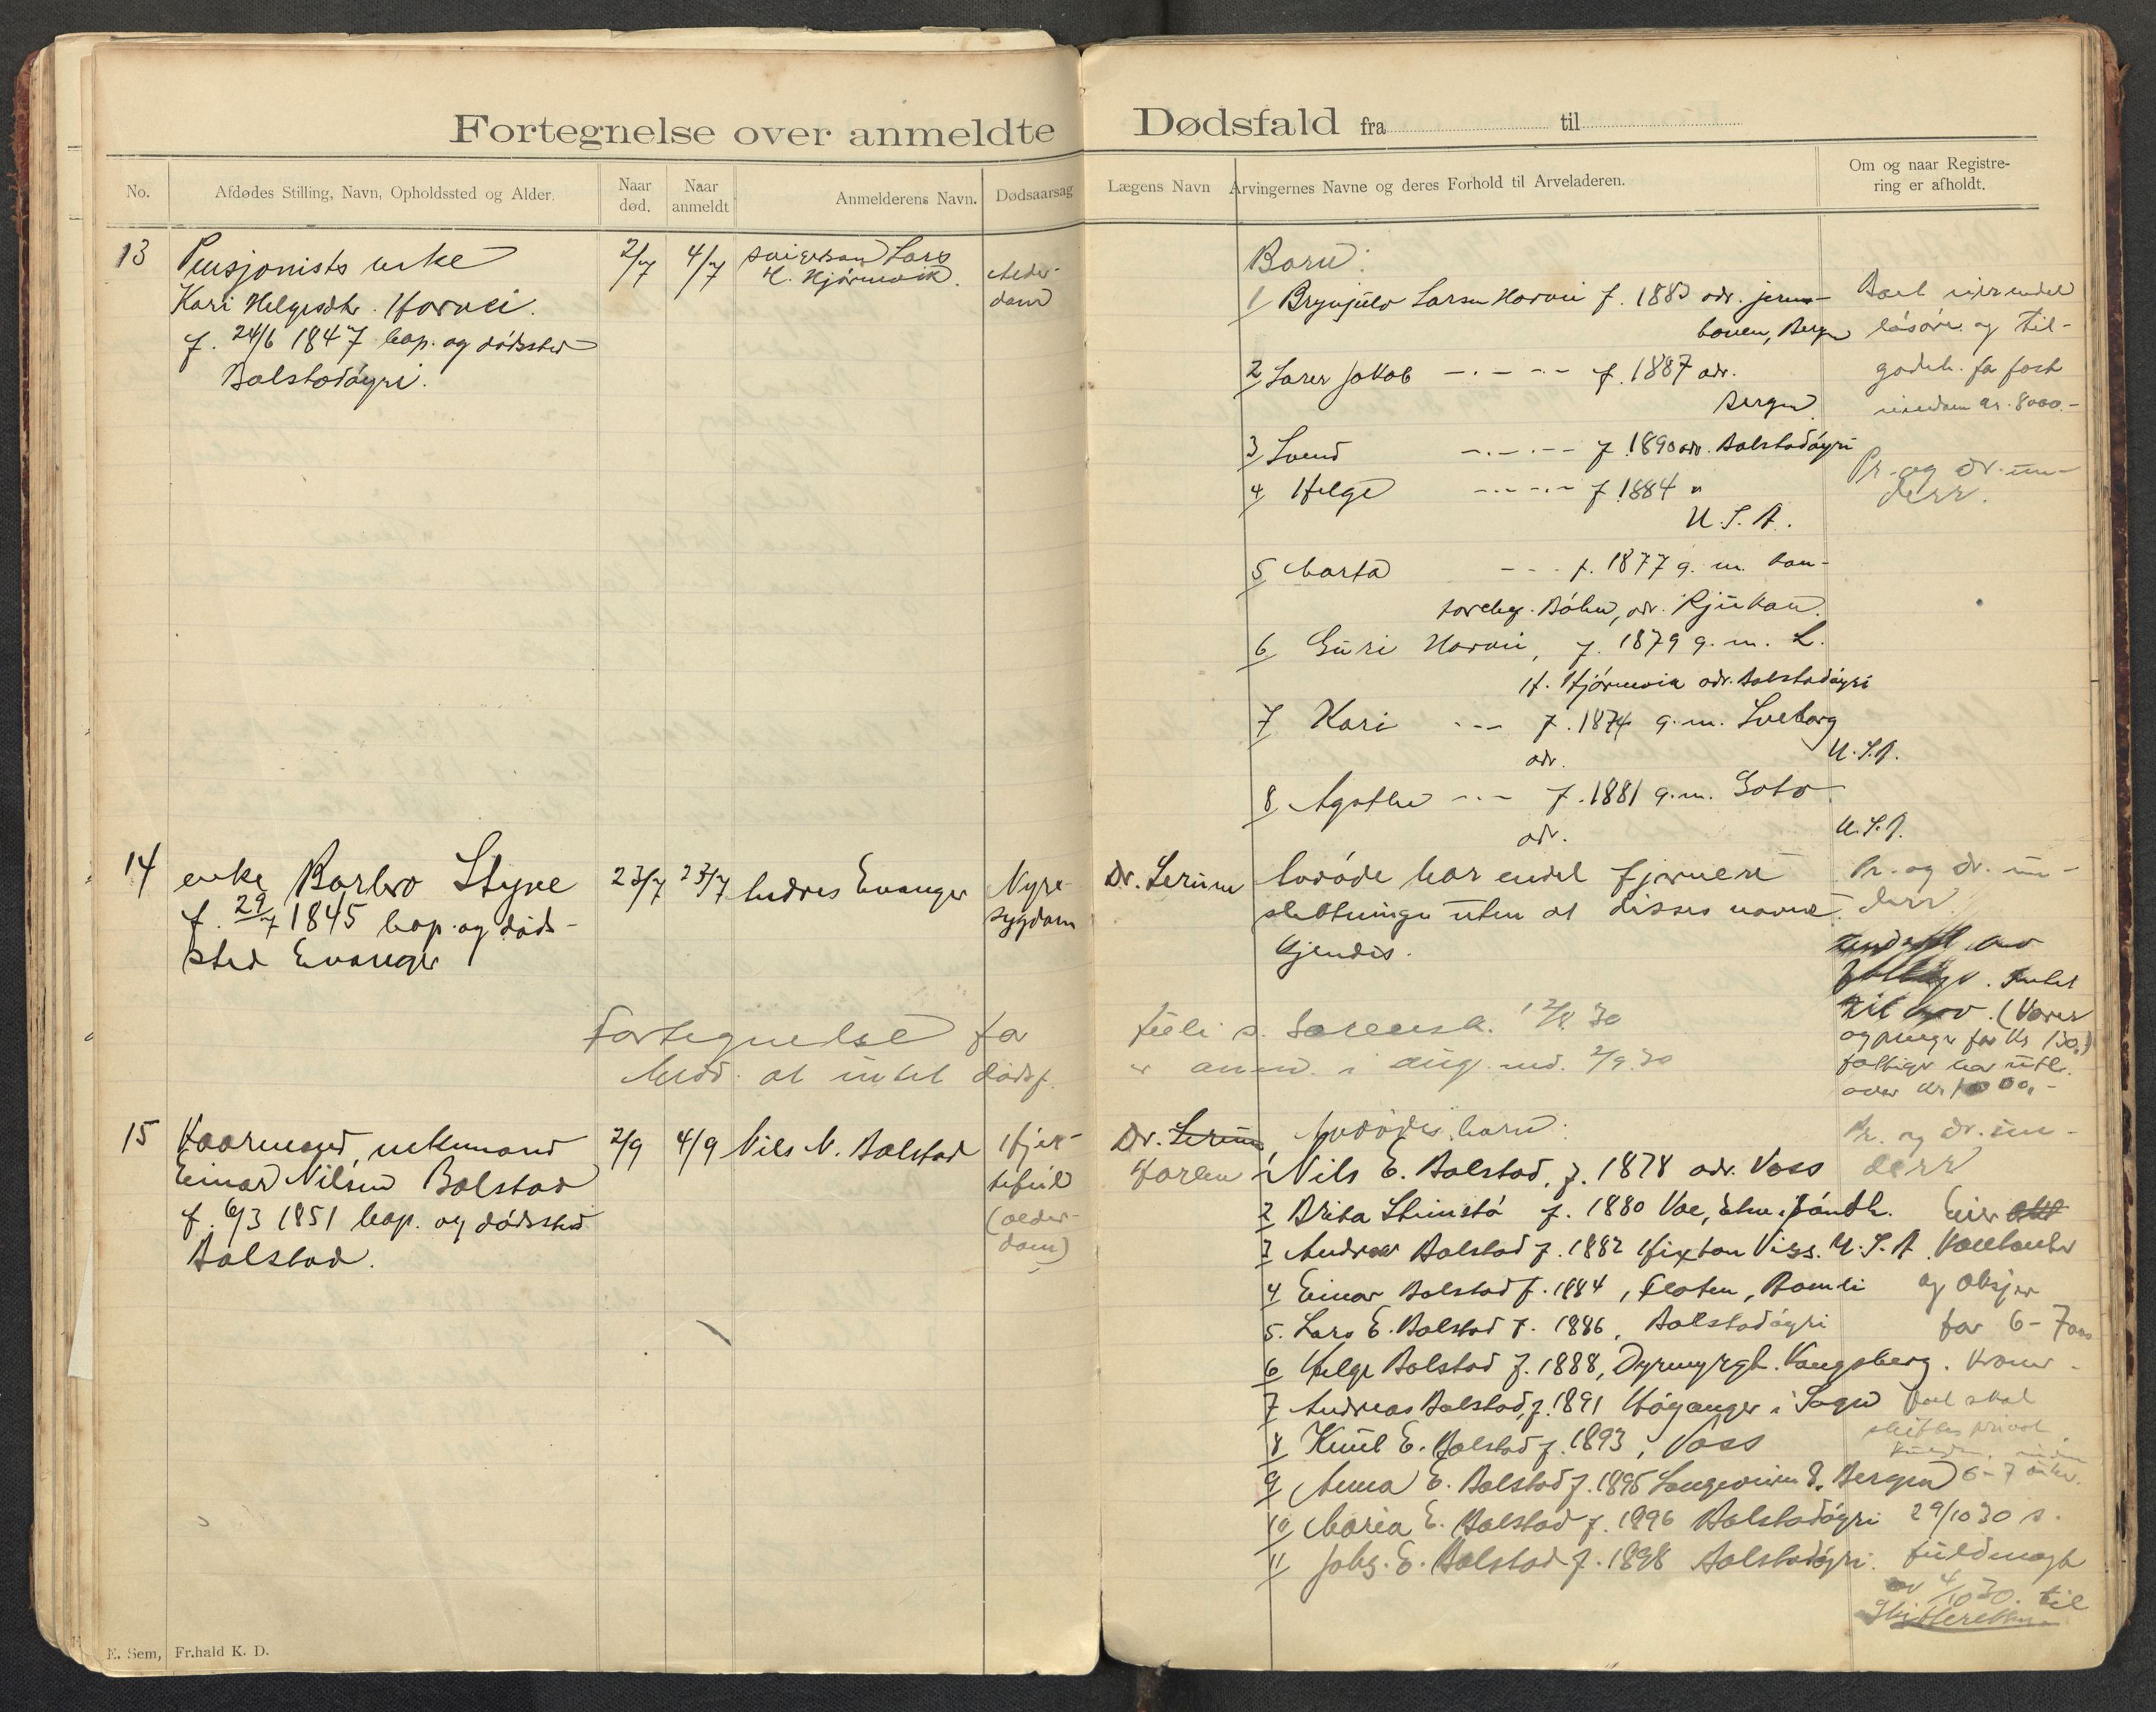 Fortegnelse over anmeldte Dødsfald fra til
No.
Afdødes Stilling, Navn, Opholdssted og Alder.
Naar død.
Naar anmeldt
Anmelderens Navn.
Dødsaarsag
Lægens Navn
Arvingernes Navne og deres Forhold til Arveladeren.
Om og naar Registre-
ring er afholdt.
13
Pensjonists enke
Kari Helgesdtr. Horvei.
f. 24/6 1847 bop. og dödssted
Bolstadöyri.
2/7
4/7
svigersøn Lars
H. Hjörnevik.
Alder-
dom
Barn:
1 Brynjulv Larsen Horvei f. 1883 adr. jern-
banen, Bergen
2 Lars Jakob -.- -.- f. 1887 adr.
Bergen
3 Svend -.-.-- f. 1890 adr. Bolstadöyri
4 Helge -.-.- f. 1884 "
U.S.A.
5 Marta --- f. 1877 g. m. kon-
torchef. Böhn, adr. Rjukan.
6 Guri Horvei, f. 1879 g. m. L.
H. Hjörnevik adr. Bolstadöyri
7 Kari --- f. 1874 g.m. Sveborg
adr. U.S.A.
8 Agathe --- f. 1881 g.m. Goto
adr. U.S.A.
Boet eier endel
lösöre og til-
godeh. for
kr. 8000.-
Pr. og dr. un-
derr.
14
enke Barbro Styve
f. 29/7 1845 bop. og död-
sted Evanger
23/7
23/7
Andres Evanger
Nyre-
sygdom
Dr. Lerum
Avdöde har endel fjernere
slektninger uten at disses navne
kjendes.
Pr. og dr. un-
derr.
Intet
(Varer
og penger for kr 150,)
fattigv. har utl.
over kr 1000,-
Fortegnelse for juli s. Sorensk. 12/8 30
Medd. at intet dödsf. er anm. i aug. md. 2/9 30
15
Kaarmand, enkemand
Einar Nilsen Bolstad
f. 6/3 1851 bop. og dödssted
Bolstad.
2/9
4/9
Nils N. Bolstad
Hjer-
tefeil
(alder-
dom)
Dr. Lerum
Horlen
Avdödes barn:
1 Nils E. Bolstad, f. 1878 adr. Voss
2 Brita Steinstö f. 1880
3 Andrew Bolstad f. 1882 Hixton Viss. U.S.A
4 Einar Bolstad f. 1884, Floten, Bomli
5. Lars E. Bolstad f. 1886, Bolstadöyri
6 Helge Bolstad f. 1888, Dyrmyrgt. Kongsberg.
7 Andreas Bolstad, f. 1891 Höyanger i Sogn
8 Knut E. Bolstad f. 1893, Voss
9 Anna E. Bolstad f. 1895 Langeveien 8. Bergen
10 Maria E. Bolstad f. 1896 Bolstadöyri
11 Johs. E. Bolstad f. 1898 Bolstadöyri.
Pr. og dr. un-
derr
Eier
kontanter
og aksjer
for 6-7000
kroner.
Boet skal
skiftes privat
6-7 uker.
29/10 30 s.
fuldmagt
av 4/10 30. til
Skifteretten
E. Sem, Fr.hald K. D.